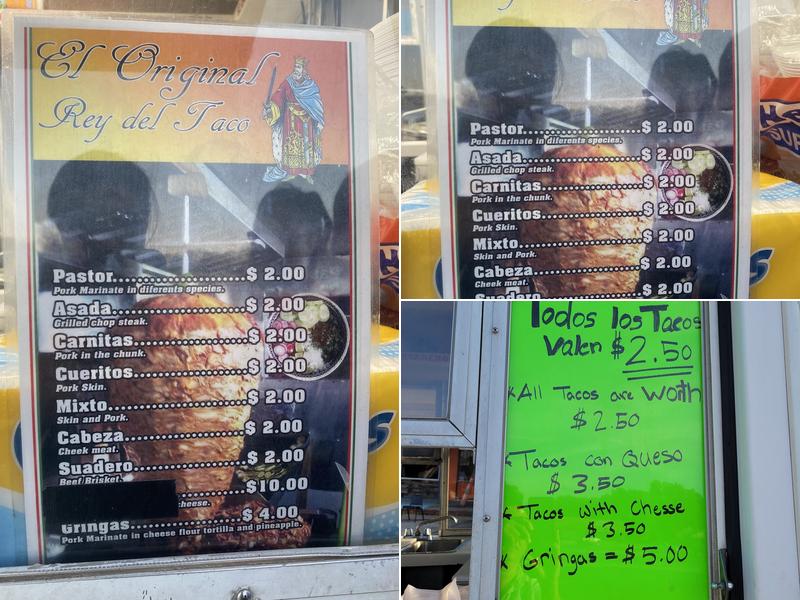 El Original
Rey del Taco
Pastor........................$ 2.00
Pork Marinate in diferents species.
Asada........................$ 2.00
Grilled chop steak.
Carnitas.....................$ 2.00
Pork in the chunk.
Cueritos.....................$ 2.00
Pork Skin.
Mixto........................$ 2.00
Skin and Pork.
Cabeza.......................$ 2.00
Cheek meat.
Suadero......................$ 2.00
Beef Brisket.
$10.00
cheese.
Gringas......................$ 4.00
Pork Marinate in cheese flour tortilla and pineapple.
Pastor........................$ 2.00
Pork Marinate in diferents species.
Asada........................$ 2.00
Grilled chop steak.
Carnitas.....................$ 2.00
Pork in the chunk.
Cueritos.....................$ 2.00
Pork Skin.
Mixto........................$ 2.00
Skin and Pork.
Cabeza.......................$ 2.00
Cheek meat.
Suadero $ 2.00
Todos los Tacos
valen $2.50
*All Tacos are Worth
$2.50
*Tacos con Queso
$3.50
*Tacos with Chesse
$3.50
*Gringas = $5.00